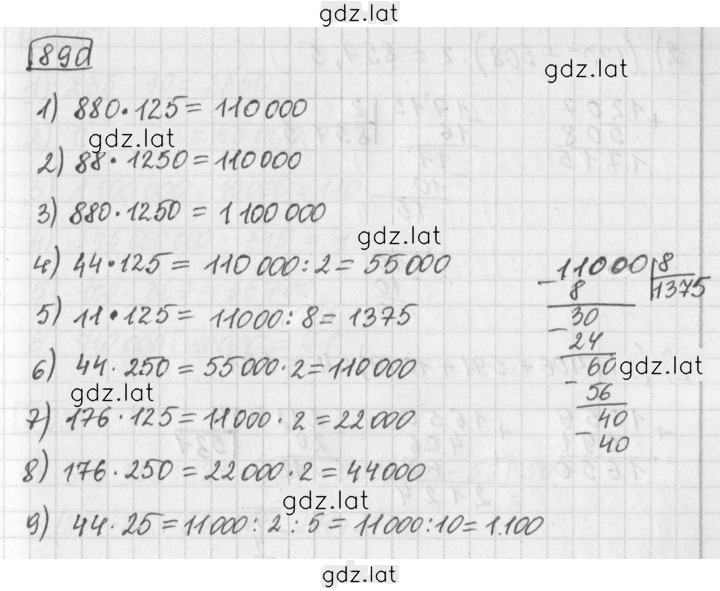 gdz.lat
890
gdz.lat
1) 880·125= 110000
gdz.lat
2) 88·1250=110000
3) 880·1250 = 1100000
gdz.lat
4) 44·125= 110000:2=55000
5) 11·125= 11000:8=1375
6) 44·250=55000·2=110000
gdz.lat
7) 176·125=11000·2=22000
8) 176·250=22000·2=44000
gdz.lat
9) 44·25=11000:2:5=11000:10=1100
11000 8
- 8 1375
30
- 24
60 gdz.lat
- 56
40
- 40
gdz.lat